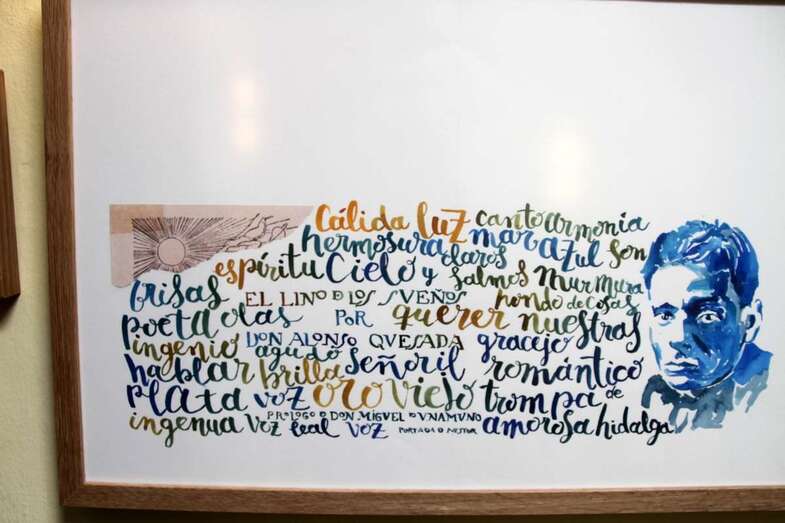 cálida luz canto armonía
hermosura claros mar azul son
espíritu cielo y salmos murmura
brisas EL LINO D LOS SVEÑOS hondo de cosas
poeta olas POR querer nuestras
ingenio DON ALONSO QUESADA gracejo
hablar agudo brilla señoril romántico
plata voz oro viejo trompa de
PROLOGO D DON MIGUEL D VNAMVNO
ingenua voz leal voz PORTADA D NESTOR amorosa hidalga